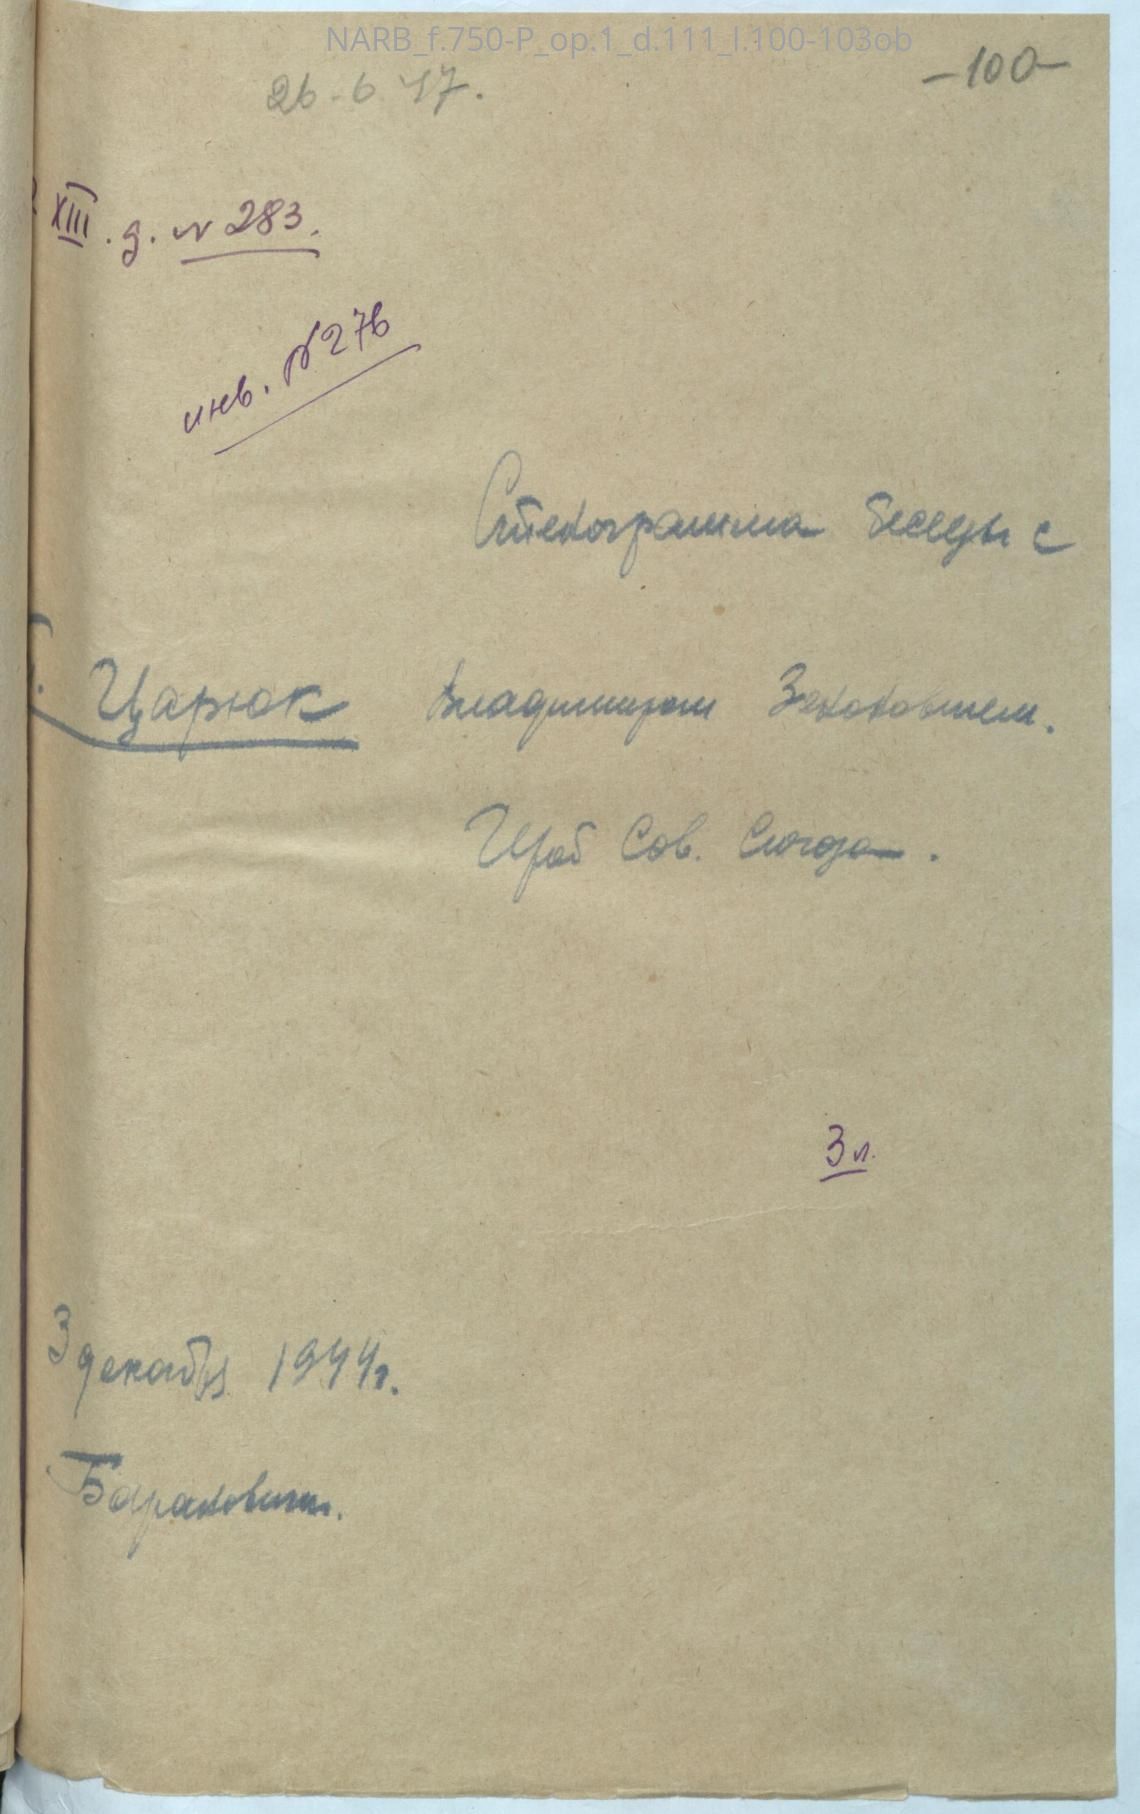 NARB_f.750-P_op.1_d.111_l.100-103ob
26-6 47.
-100-
XIII. д. № 283.
инв. № 276
Стенограмма беседы с
т. Царюк Владимиром Зеноновичем.
Герой Сов. Союза.
3 л.
3 декабря 1944г.
Барановичи.